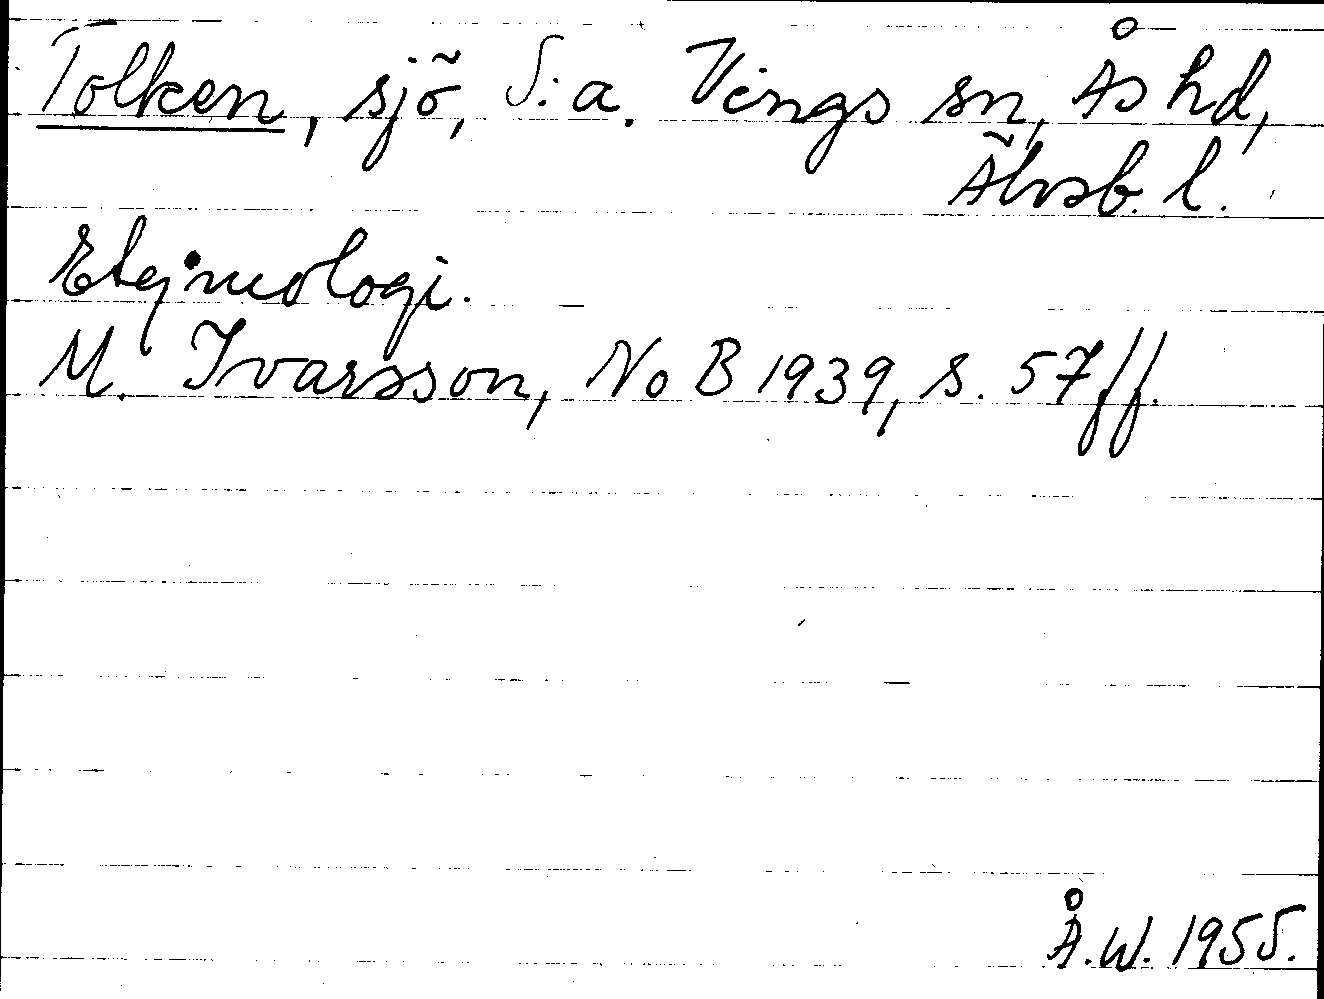 Tolken, sjö, S:a. Vings sn, Ås hd,
Älvsb. l.
Etymologi.
M. Ivarsson, NoB 1939, s. 57 ff.
Å.W. 1955.